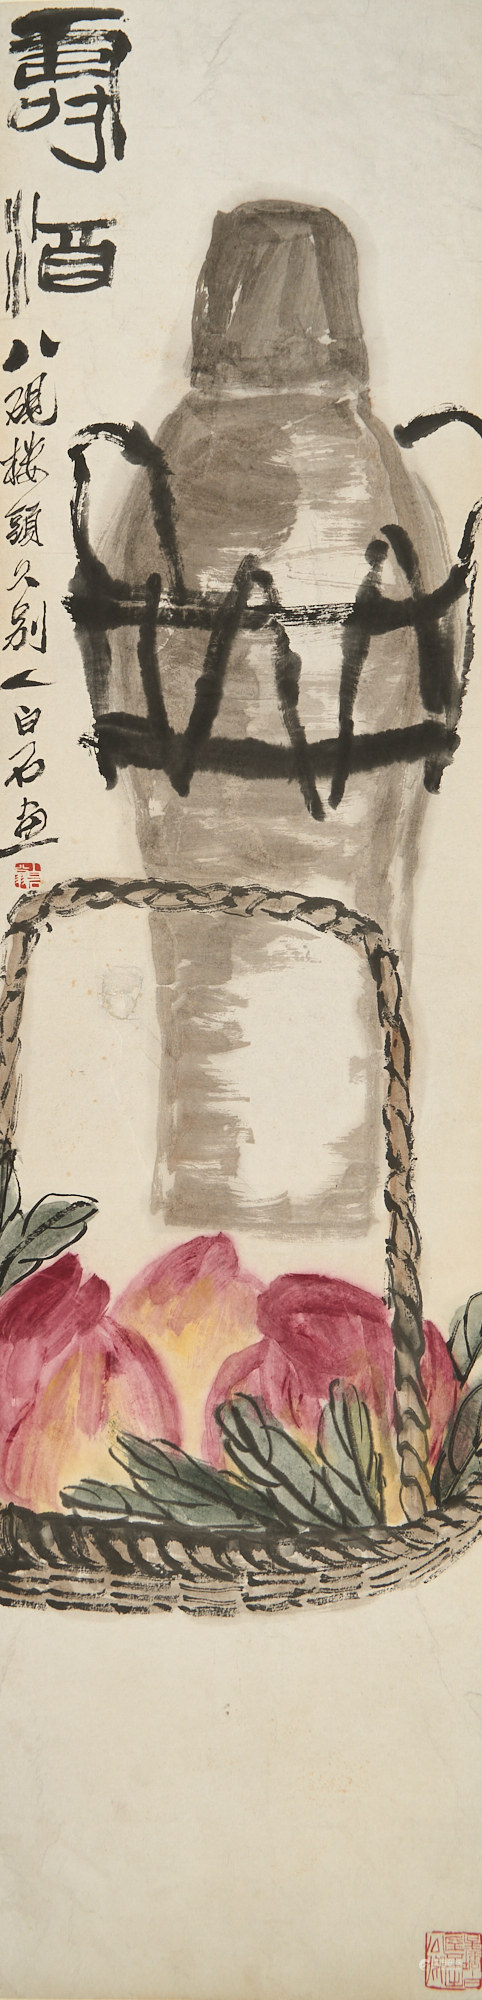 壽酒
八硯樓頭久別人白石畫